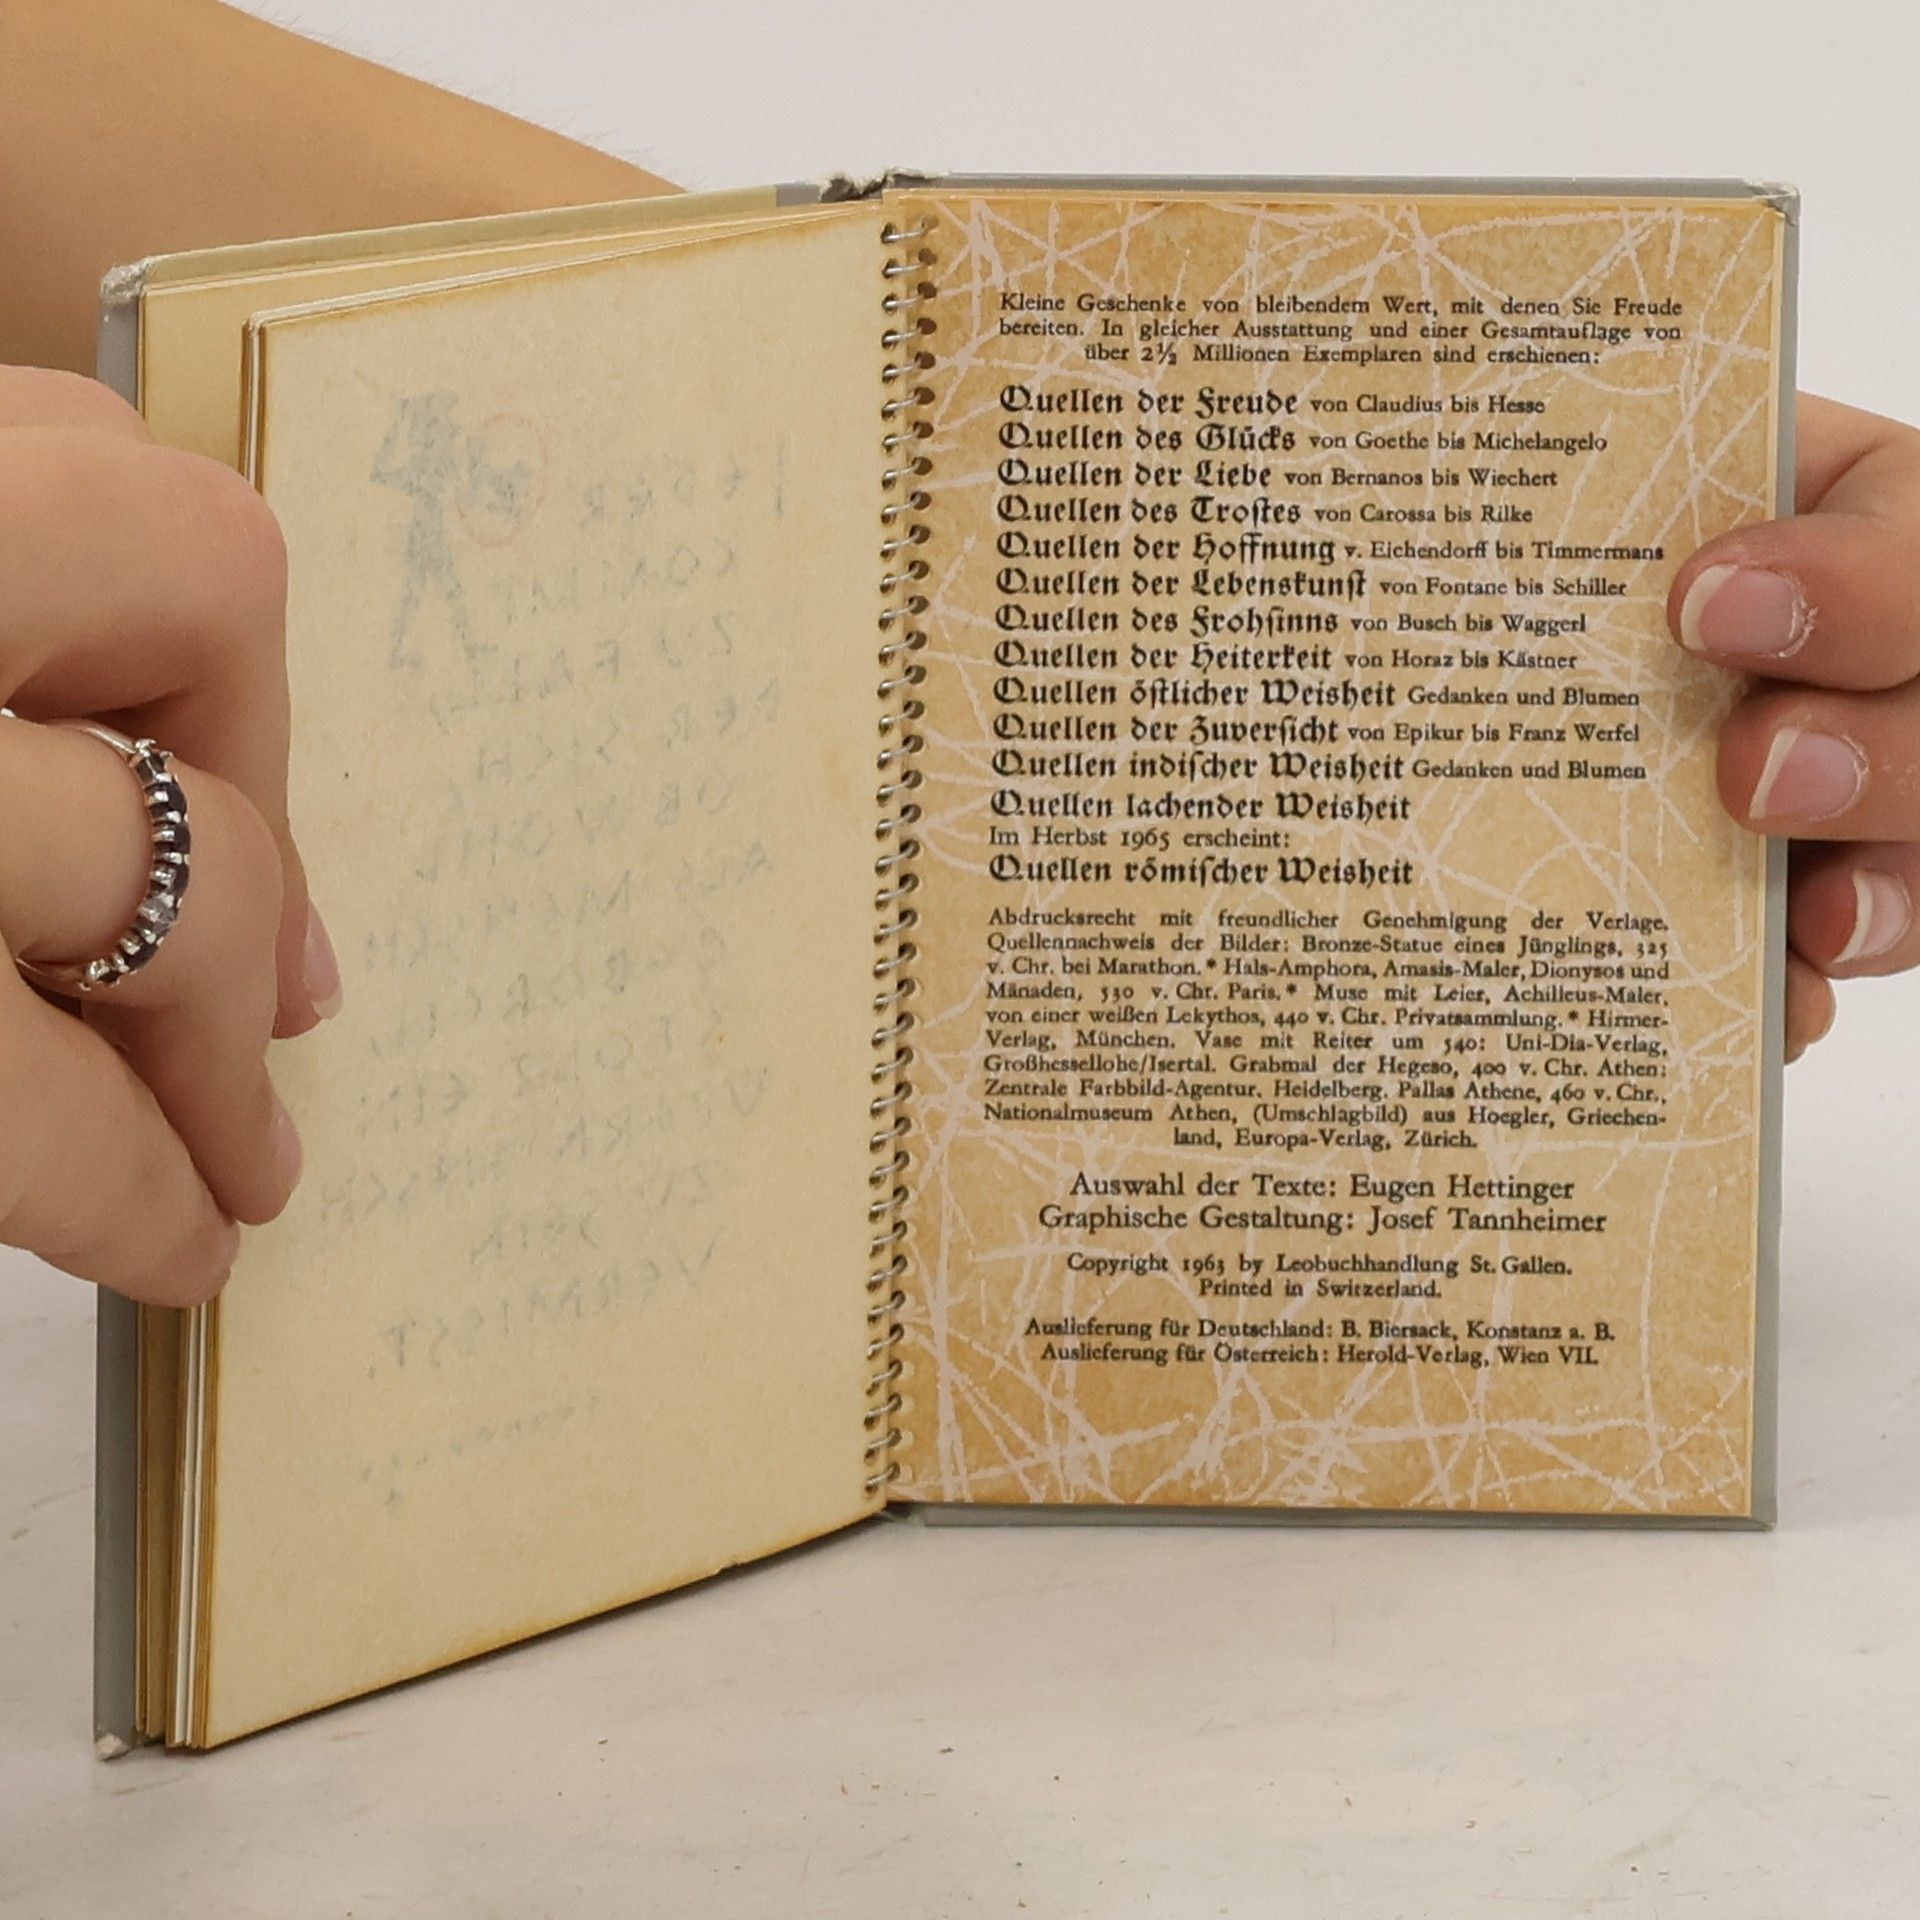 Kleine Geschenke von bleibendem Wert, mit denen Sie Freude
bereiten. In gleicher Ausstattung und einer Gesamtauflage von
über 2½ Millionen Exemplaren sind erschienen:
Quellen der Freude von Claudius bis Hesse
Quellen des Glücks von Goethe bis Michelangelo
Quellen der Liebe von Bernanos bis Wiechert
Quellen des Trostes von Carossa bis Rilke
Quellen der Hoffnung v. Eichendorff bis Timmermans
Quellen der Lebenskunst von Fontane bis Schiller
Quellen des Frohsinns von Busch bis Waggerl
Quellen der Heiterkeit von Horaz bis Kästner
Quellen östlicher Weisheit Gedanken und Blumen
Quellen der Zuversicht von Epikur bis Franz Werfel
Quellen indischer Weisheit Gedanken und Blumen
Quellen lachender Weisheit
Im Herbst 1965 erscheint:
Quellen römischer Weisheit
Abdrucksrecht mit freundlicher Genehmigung der Verlage.
Quellennachweis der Bilder: Bronze-Statue eines Jünglings, 325
v. Chr. bei Marathon. * Hals-Amphora, Amasis-Maler, Dionysos und
Mänaden, 530 v. Chr. Paris. * Muse mit Leier, Achilleus-Maler,
von einer weißen Lekythos, 440 v. Chr. Privatsammlung. * Hirmer-
Verlag, München. Vase mit Reiter um 540: Uni-Dia-Verlag,
Großhessellohe/Isertal. Grabmal der Hegeso, 400 v. Chr. Athen:
Zentrale Farbbild-Agentur, Heidelberg. Pallas Athene, 460 v. Chr.,
Nationalmuseum Athen, (Umschlagbild) aus Hoegler, Griechen-
land, Europa-Verlag, Zürich.
Auswahl der Texte: Eugen Hettinger
Graphische Gestaltung: Josef Tannheimer
Copyright 1963 by Leobuchhandlung St. Gallen.
Printed in Switzerland.
Auslieferung für Deutschland: B. Biersack, Konstanz a. B.
Auslieferung für Österreich: Herold-Verlag, Wien VII.